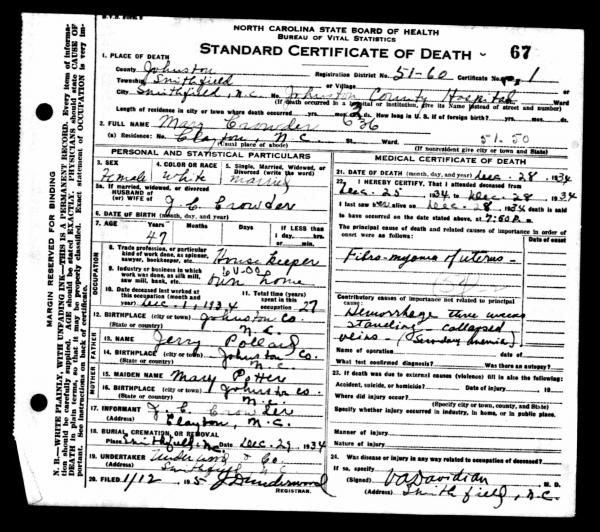 NORTH CAROLINA STATE BOARD OF HEALTH
BUREAU OF VITAL STATISTICS
STANDARD CERTIFICATE OF DEATH 67
1. PLACE OF DEATH
County Johnston Registration District No. 51-60 Certificate No. 1
Township Smithfield or Village
City Smithfield, N.C. No. Johnston County Hospital Ward
(If death occurred in a hospital or institution, give its Name instead of street and number)
Length of residence in city or town where death occurred yrs. mos. ds. How long in U. S. if of foreign birth? yrs. mos. ds.
2. FULL NAME Mary Crowder 636
(a) Residence: No. Clayton, N.C. St., Ward. 51-50
(Usual place of abode) (If nonresident give city or town and State)
PERSONAL AND STATISTICAL PARTICULARS
3. SEX 4. COLOR OR RACE 5. Single, Married, Widowed, or Divorced (write the word)
Female White Married
5a. If married, widowed, or divorced
HUSBAND of
(or) WIFE of J. E. Crowder
6. DATE OF BIRTH (month, day, and year)
7. AGE Years Months Days If LESS than
47 1 day, hrs.
or min.
OCCUPATION
8. Trade, profession, or particular kind of work done, as spinner, sawyer, bookkeeper, etc. House keeper
9. Industry or business in which work was done, as silk mill, saw mill, bank, etc. own home
10. Date deceased last worked at this occupation (month and year) Dec. 1 1934
11. Total time (years) spent in this occupation 27
12. BIRTHPLACE (city or town) Johnston Co.
(State or country) N.C.
FATHER
13. NAME Jerry Pollard
14. BIRTHPLACE (city or town) Johnston Co.
(State or country) N.C.
MOTHER
15. MAIDEN NAME Mary
16. BIRTHPLACE (city or town) Johnston Co
(State or country) N.C.
17. INFORMANT J. E. Crowder
(Address) Clayton, N.C.
18. BURIAL, CREMATION, OR REMOVAL
Place Smithfield, N.C. Date Dec. 29, 1934
19. UNDERTAKER Underwood & Co.
(Address) Smithfield, N.C.
20. FILED 1/12 1935 Underwood
REGISTRAR.
MEDICAL CERTIFICATE OF DEATH
21. DATE OF DEATH (month, day, and year) Dec. 28, 1934
22. I HEREBY CERTIFY, That I attended deceased from
Dec. 25 1934 to Dec. 28 1934
I last saw her alive on Dec. 28 1934 death is said
to have occurred on the date stated above, at 7:50 P. m.
The principal cause of death and related causes of importance in order of
onset were as follows: Date of onset
Fibro-myoma of uterus -
Contributory causes of importance not related to principal
cause:
Hemorrhage three weeks
standing - collapsed
veins - (Secondary anemia)
Name of operation date of
What test confirmed diagnosis? Was there an autopsy?
23. If death was due to external causes (violence) fill in also the following:
Accident, suicide, or homicide? Date of injury 19
Where did injury occur?
(Specify city or town, county, and State)
Specify whether injury occurred in industry, in home, or in public place.
Manner of injury
Nature of injury
24. Was disease or injury in any way related to occupation of deceased?
If so, specify
(Signed) V.A. Davidian M. D.
(Address) Smithfield, N.C.
MARGIN RESERVED FOR BINDING
N. B.—WRITE PLAINLY, WITH UNFADING INK—THIS IS A PERMANENT RECORD. Every item of information should be carefully supplied. AGE should be stated EXACTLY. PHYSICIANS should state CAUSE OF DEATH in plain terms, so that it may be properly classified. Exact statement of OCCUPATION is very important. See instructions on back of certificate.